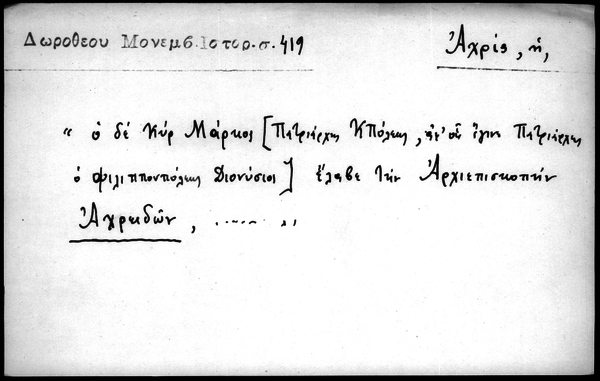 Δωροθεου Μονεμβ.Ιστορ.σ.419
Ἀχρίς, ἡ,
" ὁ δέ Κύρ Μάρκος [Πατριάρχης ΚΠόλεως, Πατριάρχης
ὁ Φιλιππουπόλεως Διονύσιος] ἔλαβε τήν Ἀρχιεπισκοπήν
Ἀχρειδῶν,